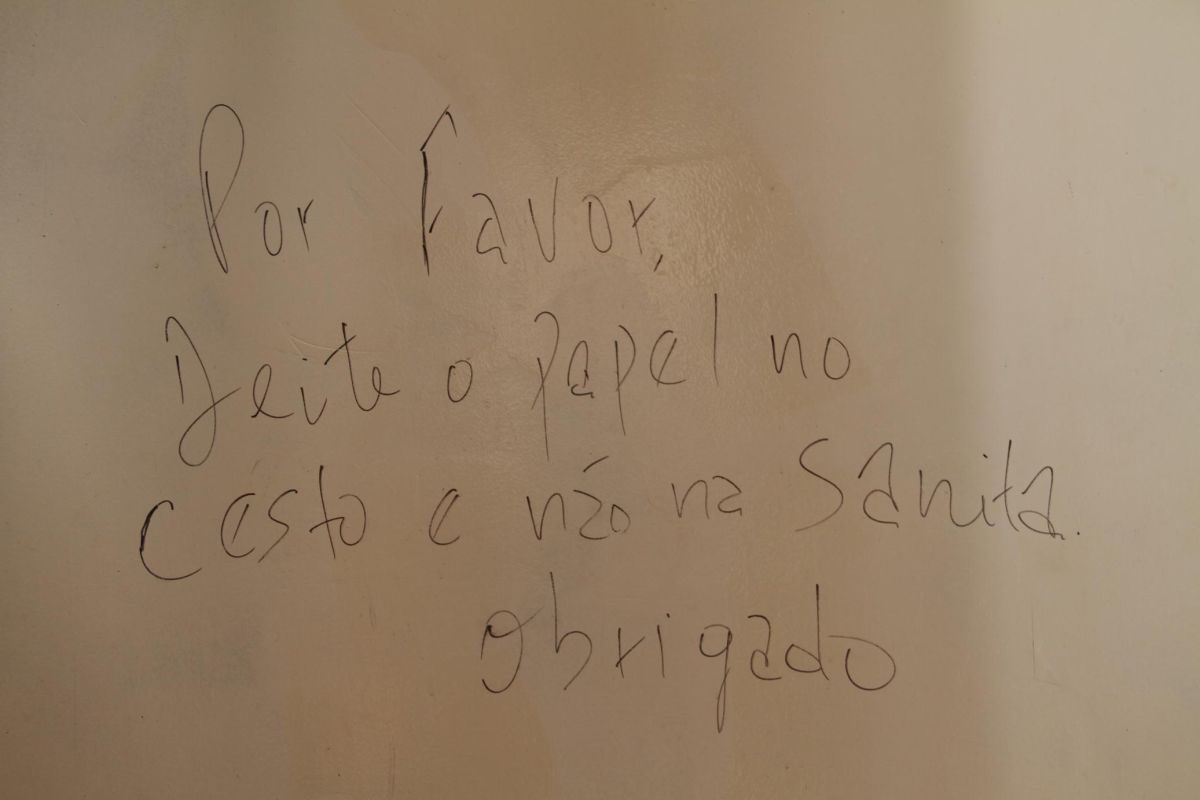 Por Favor,
Deite o papel no
cesto e não na Sanita.
obrigado